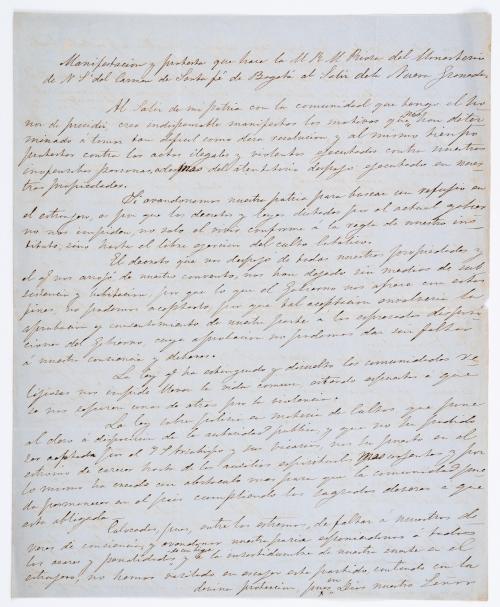 Manifestacion y protesta que hace la M. R. M. Priora del Monasterio
de N. Sª del Carmen de Santafé de Bogotá al Salir de la Nueva Granada.
Al Salir de mi patria con la comunidad que tengo el ho-
nor de presidir, creo indispensable manifestar los motivos que nos han deter-
minado á tomar tan dificil como dura resolucion, y al mismo tiempo
protestar contra los actos ilegales y violentos ejecutados contra nuestras
inofensivas personas, ademas del atentatorio despojo ejecutado en nues-
tras propiedades.
Si abandonamos nuestra patria para buscar un refugio en
el estranjero, es por que los decretos y leyes dictados por el actual gobier-
no nos impiden, no solo el vivir conforme á la regla de nuestro ins-
tituto, sino hasta el libre ejercicio del culto católico.
El decreto que nos despoja de todas nuestras propiedades y
el qe nos arroja de nuestro convento, nos han dejado sin medios de sub-
sistencia y habitacion, por que lo que el Gobierno nos ofrece con estos
fines, no podemos aceptarlo, por que tal aceptacion envolveria la
aprobacion y consentimiento de nuestra parte á las espresadas disposi-
ciones del Gobierno, cuya aprobacion no podemos dar sin faltar
á nuestra conciencia y deberes.
La ley qe ha estinguido y disuelto las comunidades re-
ligiosas nos impide llevar la vida comun, estando espuestas á que
se nos separen unas de otras por la violencia.
La ley sobre policia en materia de Cultos que pone
al clero á disposicion de la autoridad publica, y que no ha podido
ser aceptada por el Y. S. Arzobispo y sus Vicarios, nos ha puesto en el
estremo de carecer hasta de los ausilios espirituales mas importantes y por
lo mismo ha creado un obstaculo mas para que la comunidad pue-
da permanecer en el pais cumpliendo los sagrados deberes á que
está obligada.
Colocadas, pues, entre los estremos, de faltar á nuestros de-
beres de conciencia, y abandonar nuestra patria esponiendonos á todos
los azares y penalidades de un viaje y á la incertidumbre de nuestra suerte en el
estranjero, no hemos vacilado en escojer este partido contando con la
divina proteccion, pues en Dios nuestro Señor